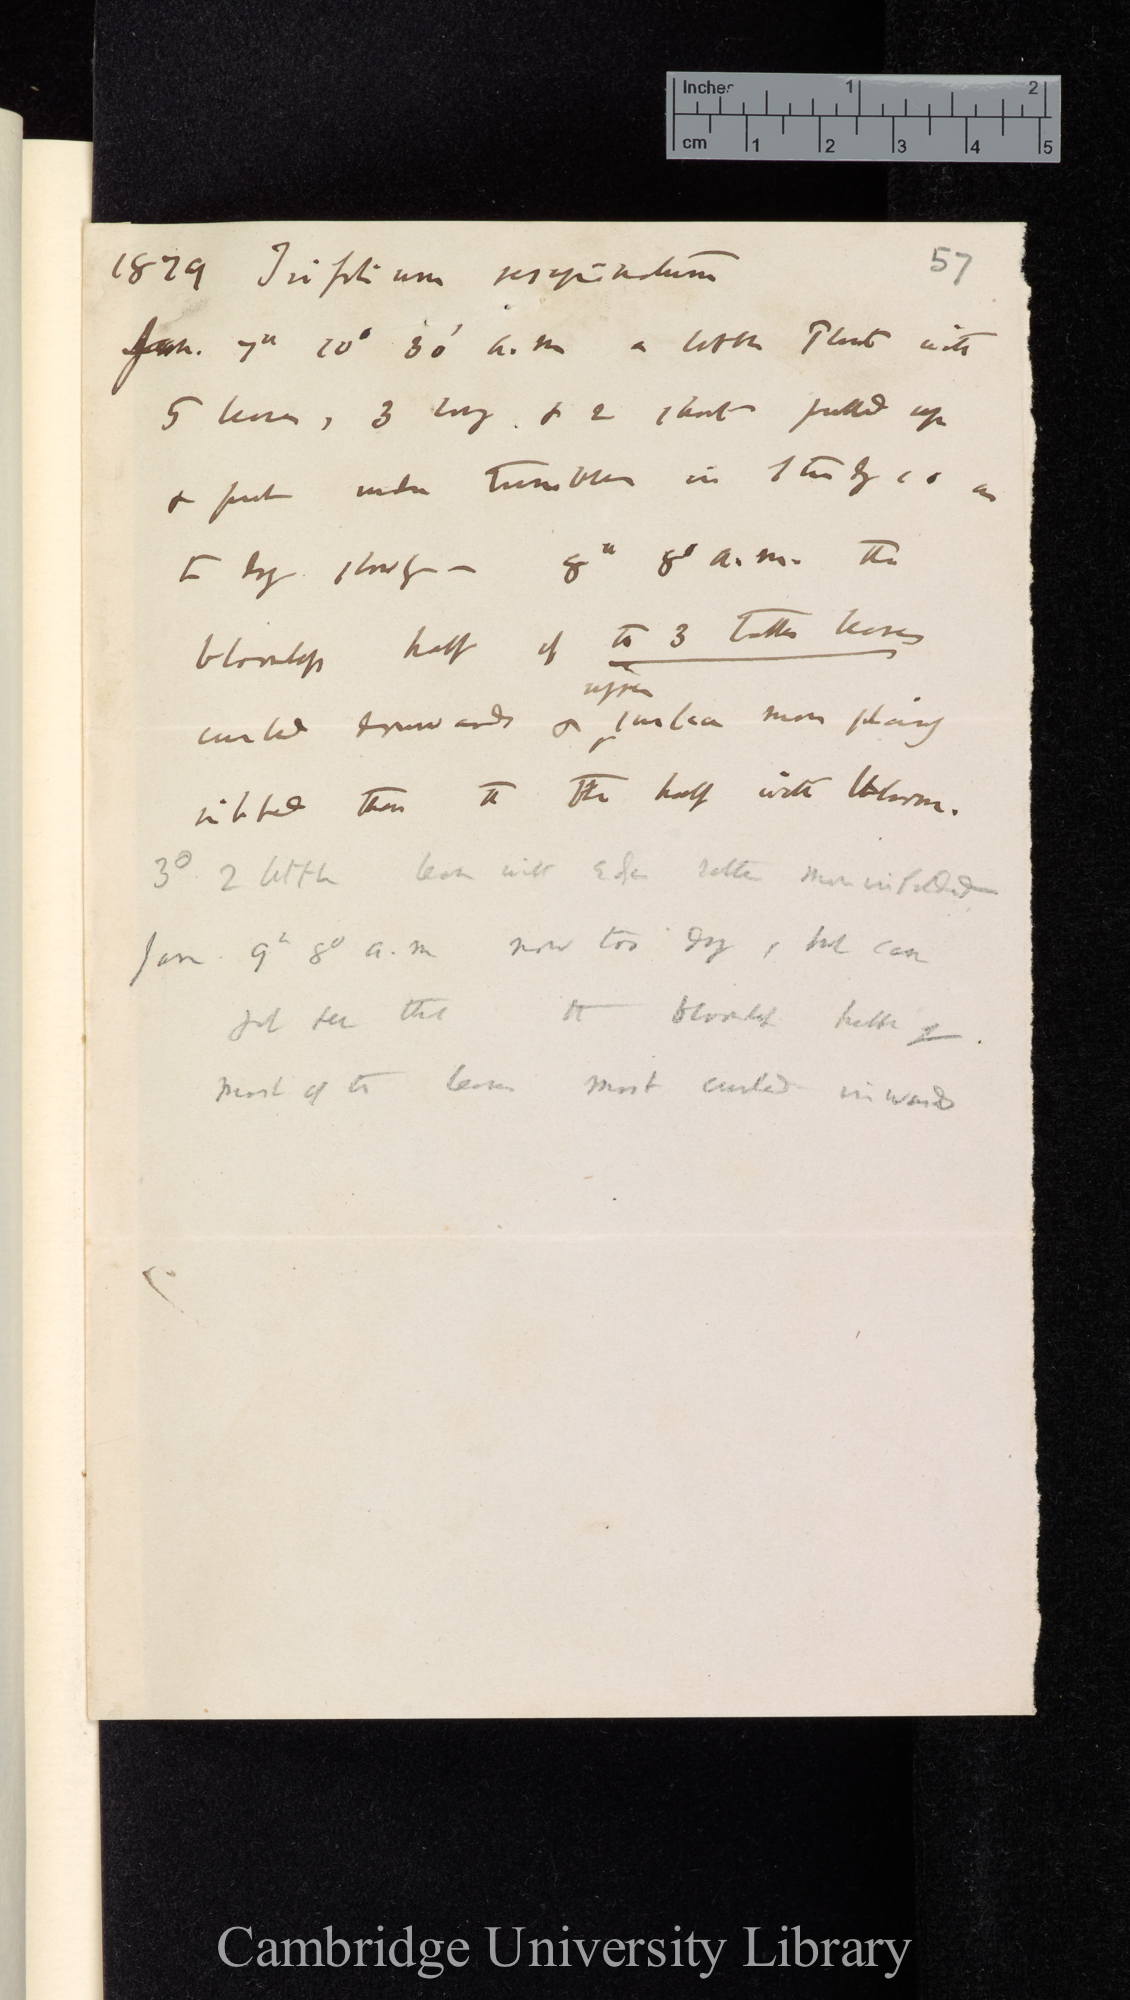 Inches 1 2
cm 1 2 3 4 5
57
1879 Trifolium resupinatum
Jan. 7th 10° 30' a.m a little Plant with
5 leaves, 3 long & 2 short pulled up
& put under tumbler in Study so as
to dry slowly — 8th 8° a.m. the
bloomless half of the 3 taller leaves
curled downwards & upper surface more plainly
ribbed than the half with bloom.
3° 2 little leaves with edges rather more infolded
Jan. 9th 8° a.m now too dry, but can
just see that the bloomless halves of
most of the leaves most curled inwards
Cambridge University Library